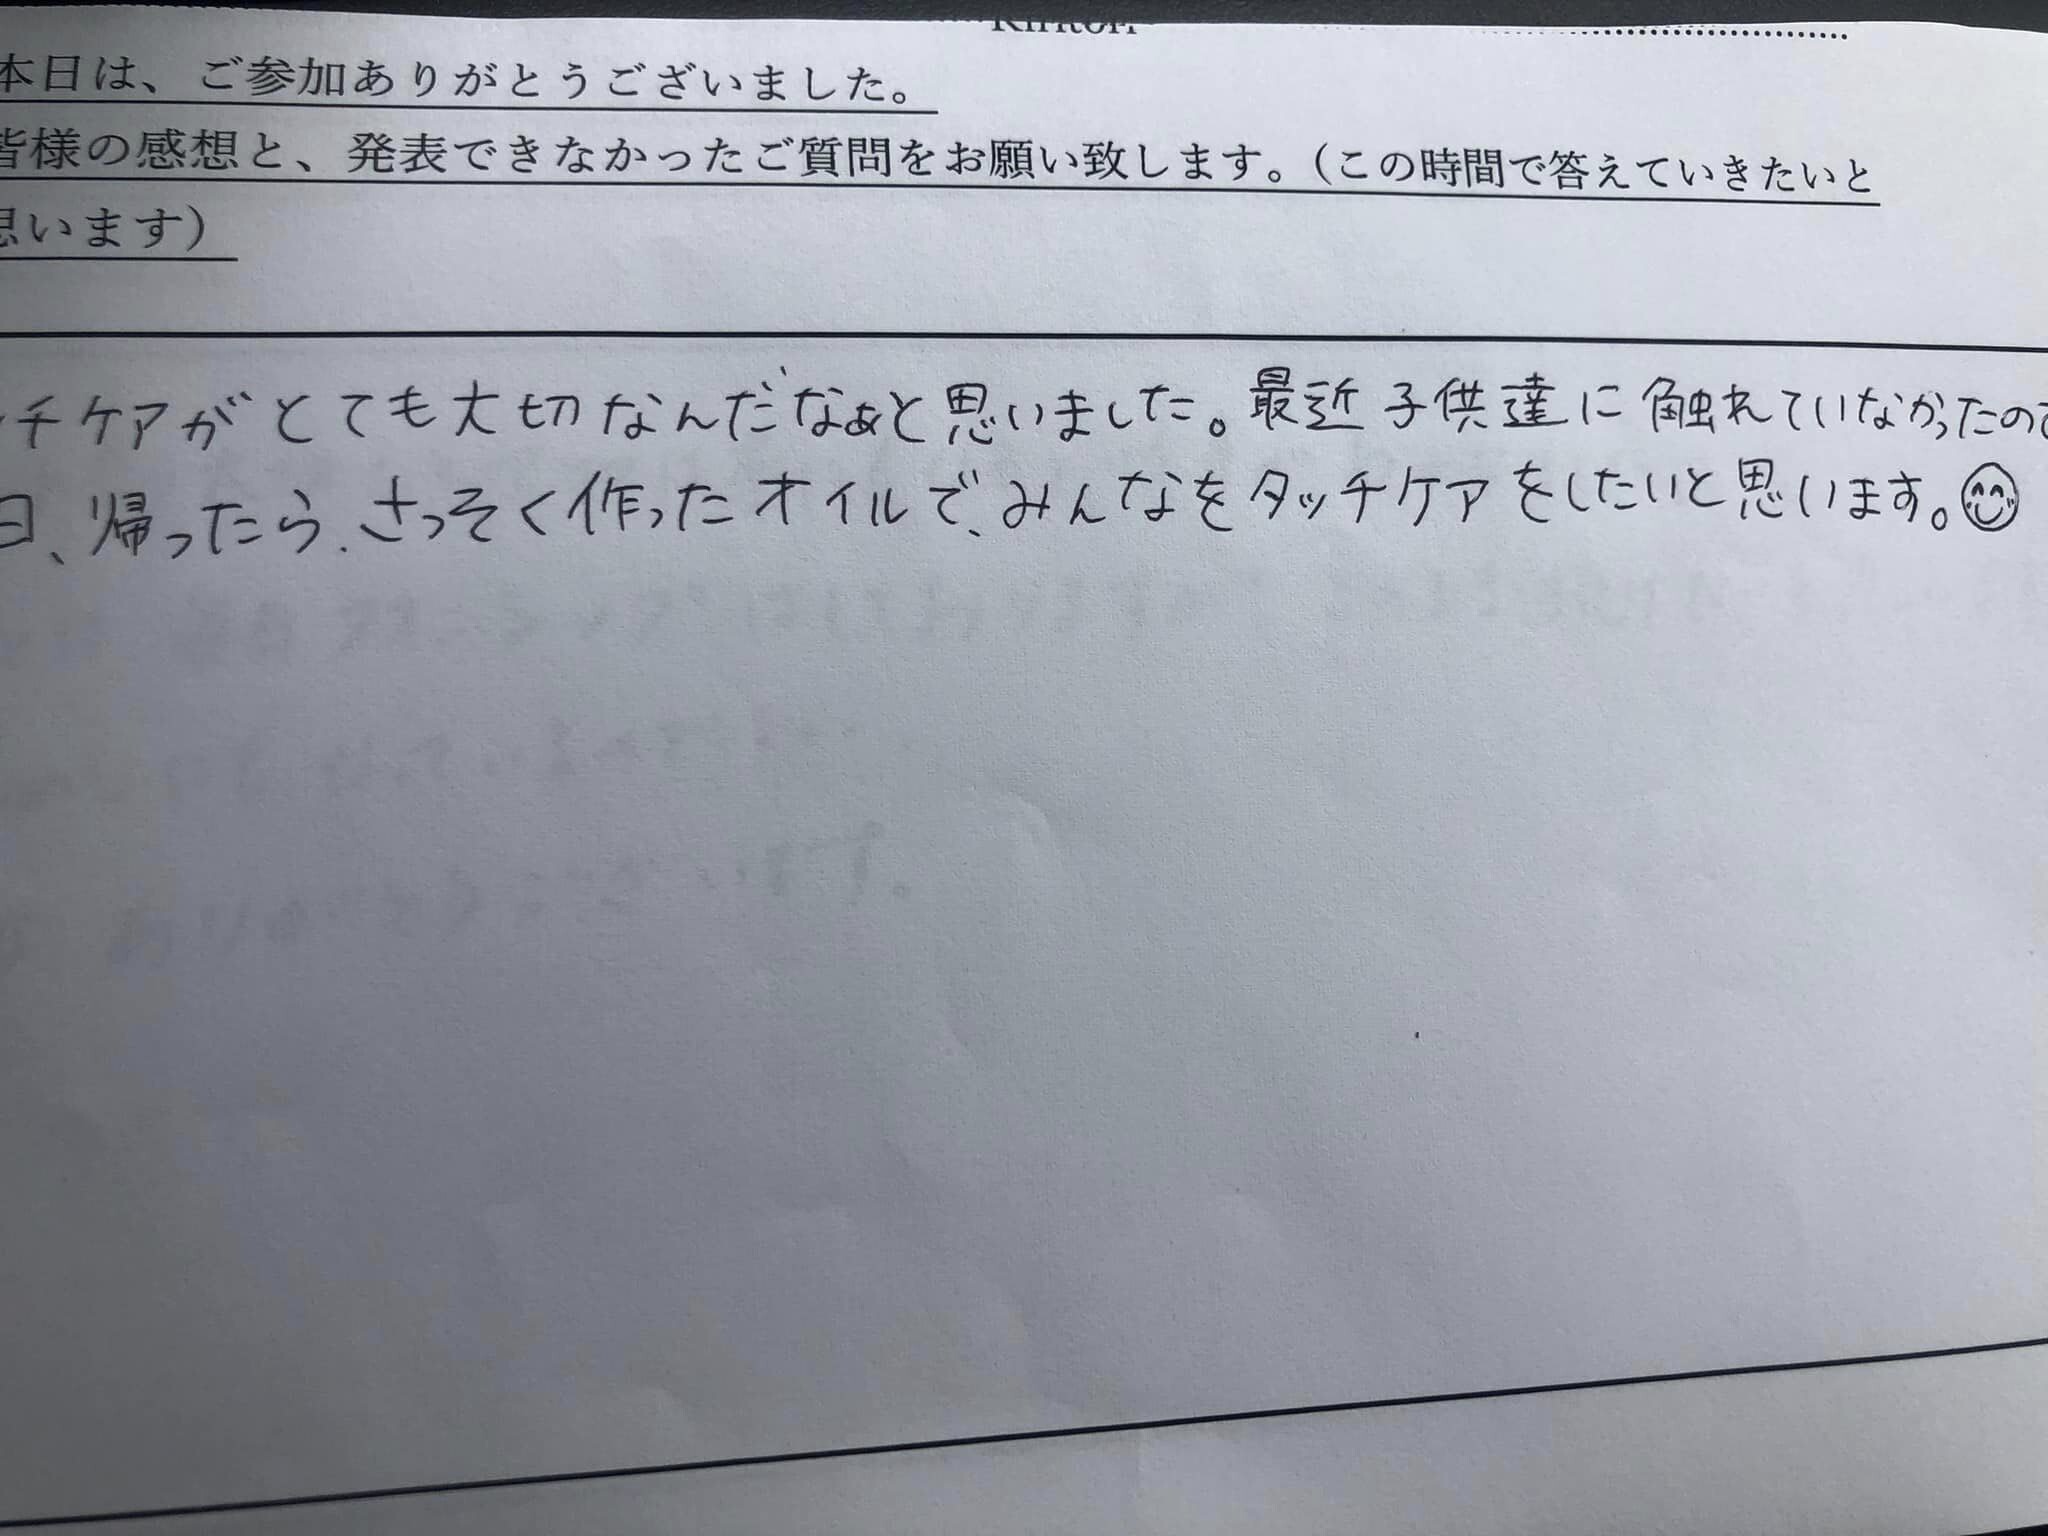 Kiritori
本日は、ご参加ありがとうございました。
皆様の感想と、発表できなかったご質問をお願い致します。（この時間で答えていきたいと
思います）
ッチケアがとても大切なんだなぁと思いました。最近子供達に触れていなかったので
日、帰ったら、さっそく作ったオイルで、みんなをタッチケアをしたいと思います。